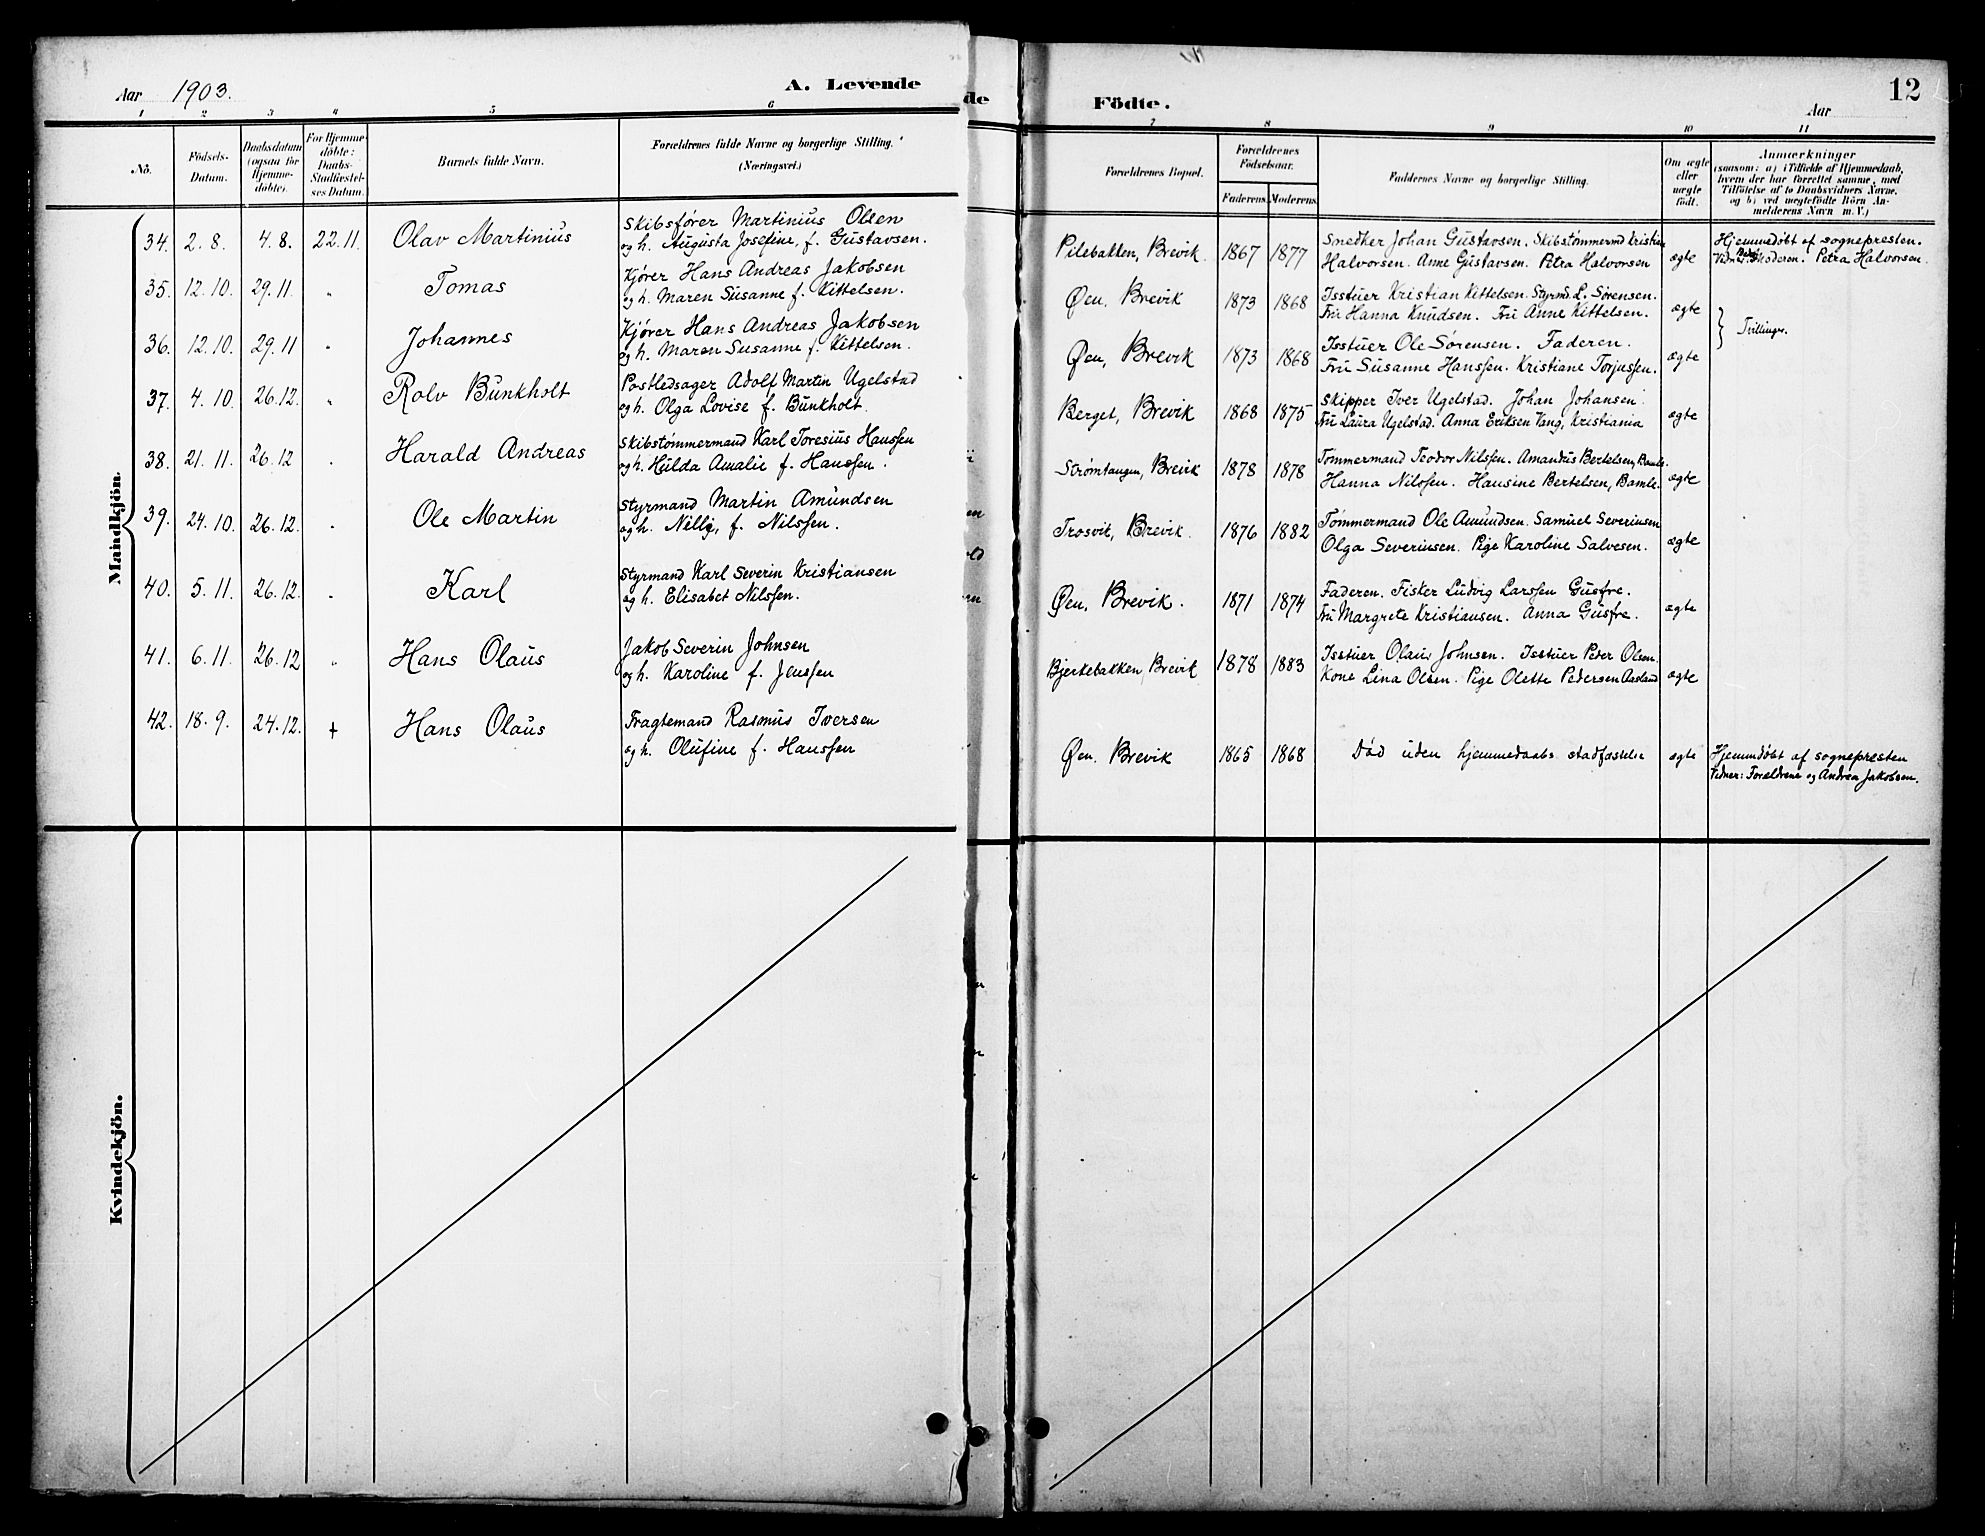 Aar 1903.
A. Levende
1 2 3 4 5 6
No.
Födsels-Datum.
Daabsdatum (ogsaa for Hjemme-döbte).
For Hjemme-döbte: Daabs-Stadfæstel-ses Datum.
Barnets fulde Navn.
Forældrenes fulde Navne og borgerlige Stilling. (Næringsvei.)
Mandkjön.
34. 2.8. 4.8. 22.11. Olav Martinius Skibsfører Martinius Olsen
og h. Augusta Josefine, f. Gustavsen.
35. 12.10. 29.11. " Tomas Kjører Hans Andreas Jakobsen
og h. Maren Susanne f. Kittelsen.
36. 12.10. 29.11 " Johannes Kjører Hans Andreas Jakobsen
og h. Maren Susanne f. Kittelsen.
37. 4.10. 26.12. " Rolv Bunkholt Postledsager Adolf Martin Ugelstad
og h. Olga Lovise f. Bunkholt.
38. 21.11. 26.12 " Harald Andreas Skibstømmermand Karl Toresius Hanssen
og h. Hilda Amalie f. Hanssen.
39. 24.10. 26.12. " Ole Martin Styrmand Martin Amundsen
og h. Nelly, f. Nilssen.
40. 5.11. 26.12. " Karl Styrmand Karl Severin Kristiansen
og h. Elisabet Nilssen.
41. 6.11. 26.12 " Hans Olaus Jakob Severin Johnsen
og h. Karoline f. Jenssen
42. 18.9. 24.12. + Hans Olaus Fragtemand Rasmus Iversen
og h. Olufine f. Hanssen
Kvindekjön.
de
Födte.
12
Aar
7 8 9 10 11
Forældrenes Bopæl.
Forældrenes Födselsaar.
Faderens Moderens
Faddernes Navne og borgerlige Stilling.
Om ægte eller uægte født.
Anmærkninger
(saasom: a) i Tilfælde af Hjemmedaab, hvem der har forrettet samme, med Tilföielse af to Daabsvidners Navne, og b) ved uægtefödte Börn An-melderens Navn m. V.)
Pilebakken, Brevik. 1867 1877 Smedker Johan Gustavsen. Skibstømmermd Kristian
Halvorsen. Anne Gustavsen. Petra Halvorsen ægte Hjemmedøbt af sognepresten.
Moderen. Petra Halvorsen.
Øen, Brevik 1873 1868 Isstuer Kristian Kittelsen. Styrmd. L. Sørensen.
Fru Hanna Knudsen. Fru Anne Kittelsen. ægte
} Tvillinger.
Øen, Brevik 1873 1868 Isstuer Ole Sørensen. Faderen.
Fru Susanne Hanssen. Kristiane Torjussen. ægte
Berget, Brevik 1868 1875 Skipper Iver Ugelstad. Johan Johansen.
Fru Laura Ugelstad. Anna Eriksen Vang, Kristiania ægte
Strømtangen, Brevik 1878 1878 Tømmermand Teodor Nilssen. Amandus Bertelsen, Bamle.
Hanna Nilssen. Hansine Bertelsen, Bamle. ægte
Trosvik, Brevik. 1876 1882 Tømmermand Ole Amundsen. Samuel Severinsen
Olga Severinsen. Pige Karoline Salvesen. ægte
Øen, Brevik. 1871 1874 Faderen. Fisker Ludvig Larssen Gusfre.
Fru Margrete Kristiansen. Anna Gusfre. ægte
Bjerkebakken, Brevik 1878 1883 Isstuer Olaus Johnsen. Isstuer Peder Olsen.
Kone Lina Olsen. Pige Olette Pedersen Aasland ægte
Øen, Brevik 1865 1868 Død uden hjemmedaabs stadfæstelse ægte Hjemmdøbt af sognepresten
Vidner: Forældrene og Andrea Jakobsen.